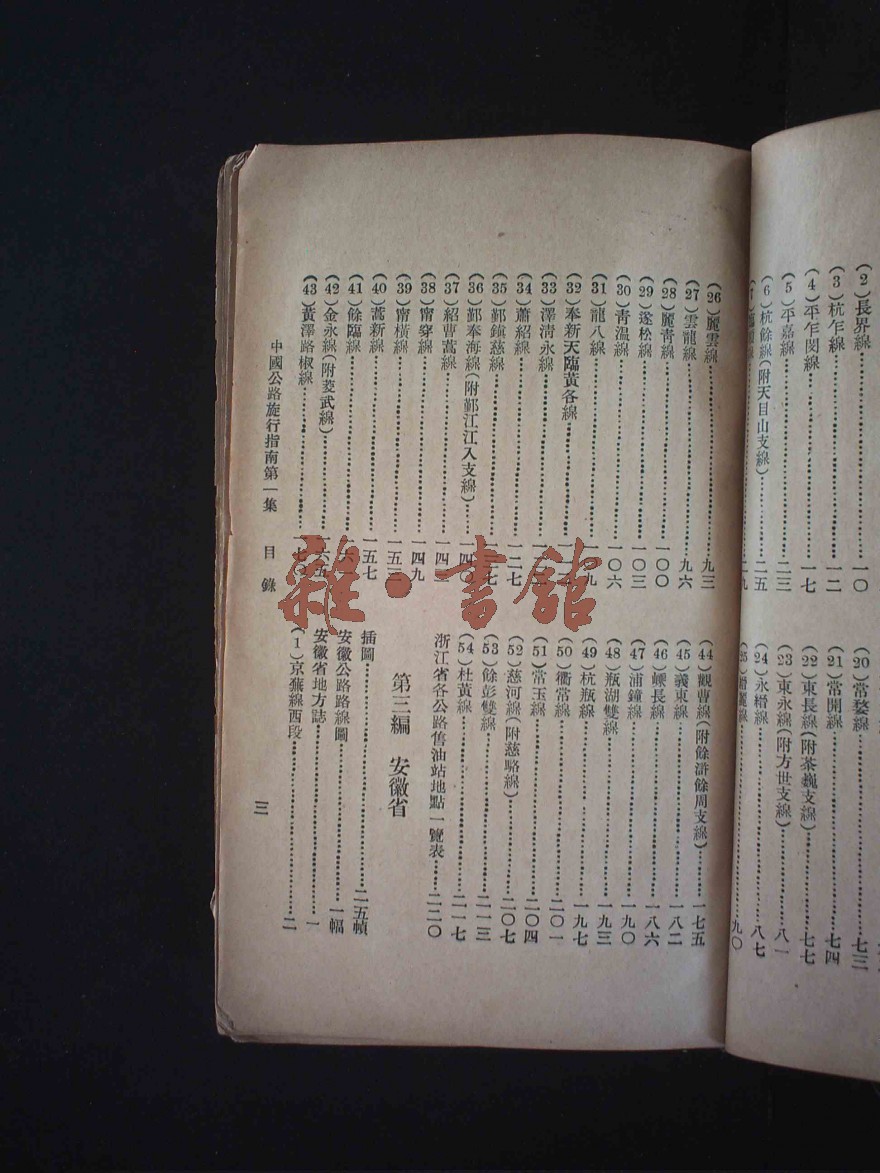 (2)長界線……一〇
(3)杭乍線……一二
(4)平乍閔線……一七
(5)平嘉線……二三
(6)杭餘線(附天目山支線)……二五
(7)……二九
(20)常婺線……七三
(21)常開線……七四
(22)東長線(附茶巍支線)……七七
(23)東永線(附方世支線)……八一
(24)永縉線……八七
(25)縉麗線……九〇
(26)麗雲線……九三
(27)雲龍線……九六
(28)麗青線……一〇〇
(29)遂松線……一〇三
(30)青溫線……一〇六
(31)龍八線……一〇九
(32)奉新天臨黃各線……
(33)澤清永線……
(34)蕭紹線……一二七
(35)鄞鎮慈線……
(36)鄞奉海線(附鄞江江入支線)……一四〇
(37)紹曹蒿線……
(38)甯穿線……一四九
(39)甯橫線……一五三
(40)蒿新線……一五七
(41)餘臨線……
(42)金永線(附菱武線)……一六五
(43)黃澤路椒線……一七〇
(44)觀曹線(附餘滸餘周支線)……一七五
(45)義東線……一八二
(46)嵊長線……一八六
(47)浦鐘線……一九〇
(48)瓶湖雙線……一九三
(49)杭瓶線……一九七
(50)衢常線……二〇一
(51)常玉線……二〇四
(52)慈河線(附慈駱線)……二〇七
(53)餘彭雙線……二一三
(54)杜黃線……二一七
浙江省各公路售油站地點一覽表……二二〇
第三編 安徽省
插圖……二五幀
安徽公路路線圖……一幅
安徽省地方誌……一
(1)京蕪線西段……二
中國公路旅行指南第一集 目錄
三
雜·書館